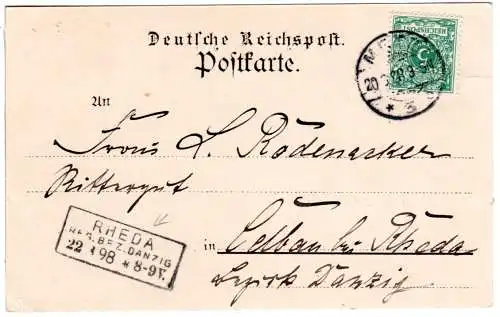 Deutsche Reichspost.
Postkarte.
An
L. Rodenacker
Rittergut
in Celbau bei Rheda
Bezirk Danzig
RHEDA
REG. BEZ. DANZIG
98 * 8-9 V.
5